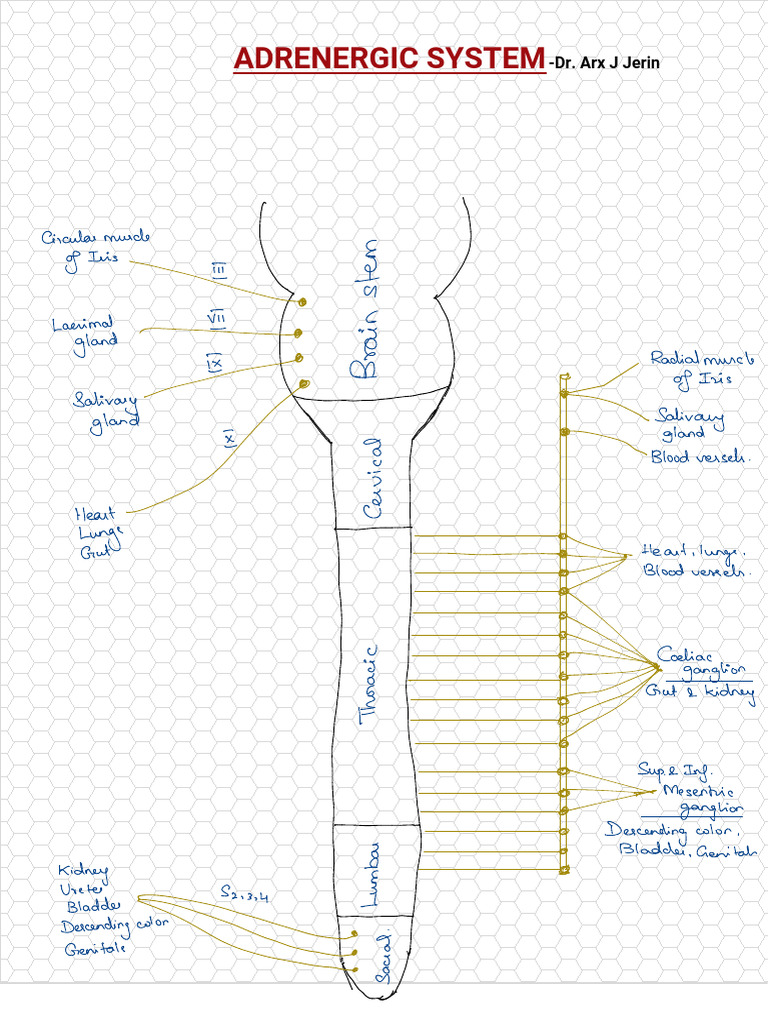 ADRENERGIC SYSTEM -Dr. Arx J Jerin
Circular muscle
of Iris
(III)
Lacrimal
gland
(VII)
Salivary
gland
(IX)
Heart
Lungs
Gut
(X)
Brain stem
Cervical
Thoracic
Lumbar
Sacral.
Radial muscle
of Iris
Salivary
gland
Blood vessels.
Heart, lungs,
Blood vessels.
Coeliac
ganglion
Gut & kidney
Sup. & Inf.
Mesentric
ganglion
Descending color,
Bladder, Genitals
Kidney
Ureter
Bladder
Descending color
Genitals
S2,3,4